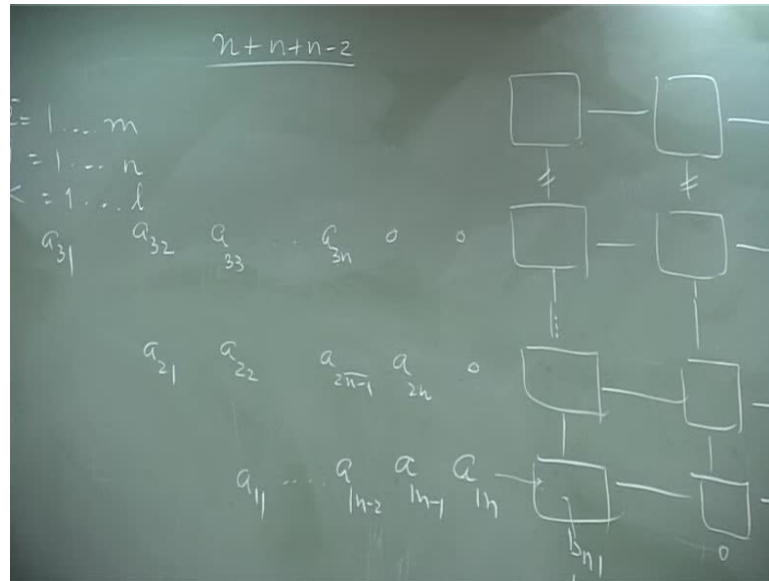 n+n+n-2
= 1 .... m
= 1 ... n
= 1 ... l
a31 a32 a33 .. a3n 0 0
a21 a22 a2n-1 a2n 0
a11 .... a1n-2 a1n-1 a1n
bn1
0